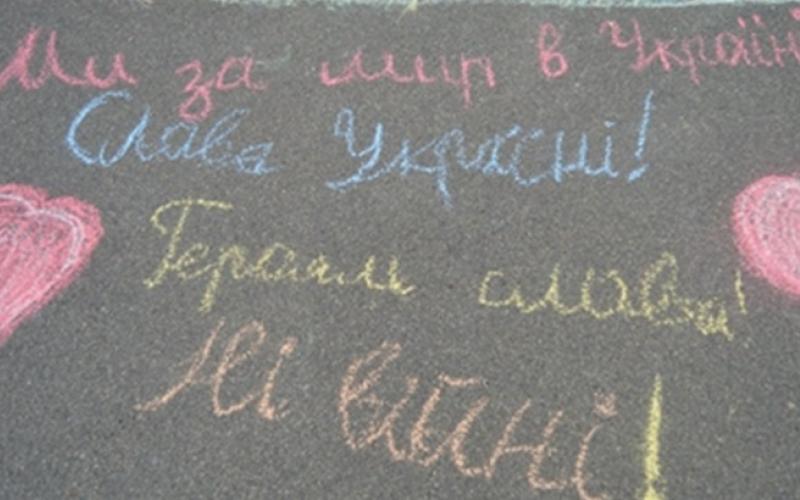 Ми за мир в Україні
Слава Україні!
Героям слава!
Ні війні!